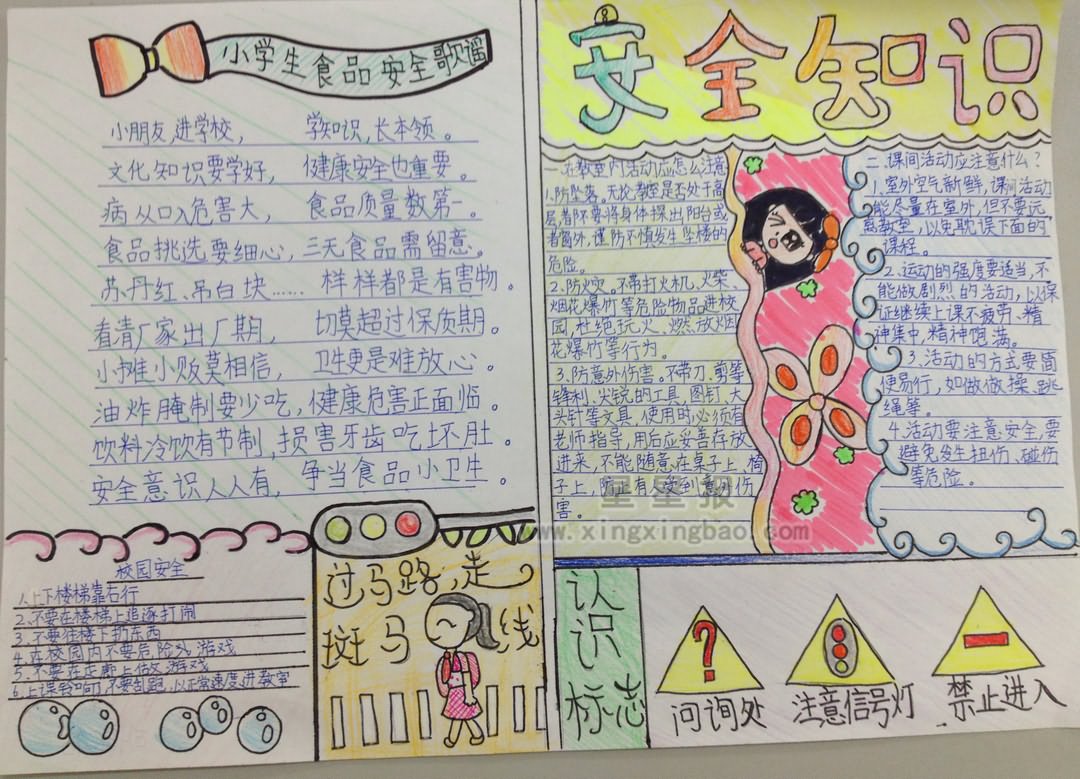 小学生食品安全歌谣
小朋友,进学校, 学知识,长本领。
文化知识要学好, 健康安全也重要。
病从口入危害大, 食品质量数第一。
食品挑选要细心,三无食品需留意。
苏丹红、吊白块…… 样样都是有害物。
看清厂家出厂期, 切莫超过保质期。
小摊小贩莫相信, 卫生更是难放心。
油炸腌制要少吃,健康危害正面临。
饮料冷饮有节制,损害牙齿吃坏肚。
安全意识人人有, 争当食品小卫生。
校园安全
1.上下楼梯靠右行
2.不要在楼梯上追逐打闹
3.不要往楼下扔东西
4.在校园内不要危险处游戏
5.不要在走廊上做游戏
6.上课铃响了,不要乱跑,以正常速度进教室
过马路,走
斑马线
安全知识
一.在教室内活动应怎么注意
1.防坠落。无论教室是否处于高
层,都不要将身体探出阳台或
者窗外,谨防不慎发生坠楼的
危险。
2.防火灾。不带打火机、火柴、
烟花爆竹等危险物品进校
园,杜绝玩火、燃放烟
花爆竹等行为。
3.防意外伤害。不带刀、剪等
锋利、尖锐的工具,图钉、大
头针等文具,使用时必须有
老师指导,用后应妥善存放
进来,不能随意在桌子上、椅
子上,防止有人受到意外伤
害。
二.课间活动应注意什么?
1.室外空气新鲜,课间活动
能尽量在室外,但不要远
离教室,以免耽误下面的
课程。
2.运动的强度要适当,不
能做剧烈的活动,以保
证继续上课不疲劳、精
神集中,精神饱满。
3.活动的方式要简
便易行,如做做操、跳
绳等。
4.活动要注意安全,要
避免发生扭伤、碰伤
等危险。
星星报
www.xingxingbao.com
认识
标志
问询处
注意信号灯
禁止进入